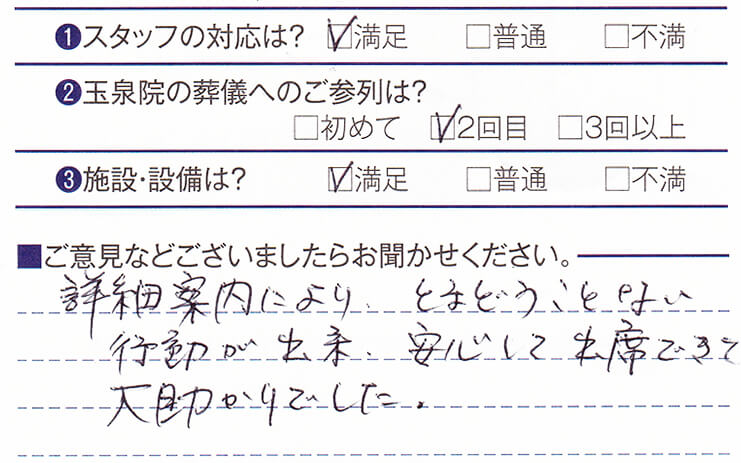 ❶スタッフの対応は? ☑満足 □普通 □不満
❷玉泉院の葬儀へのご参列は?
□初めて ☑2回目 □3回以上
❸施設・設備は? ☑満足 □普通 □不満
■ご意見などございましたらお聞かせください。
詳細案内により、とまどうことない
行動が出来、安心して出席できて
大助かりでした。